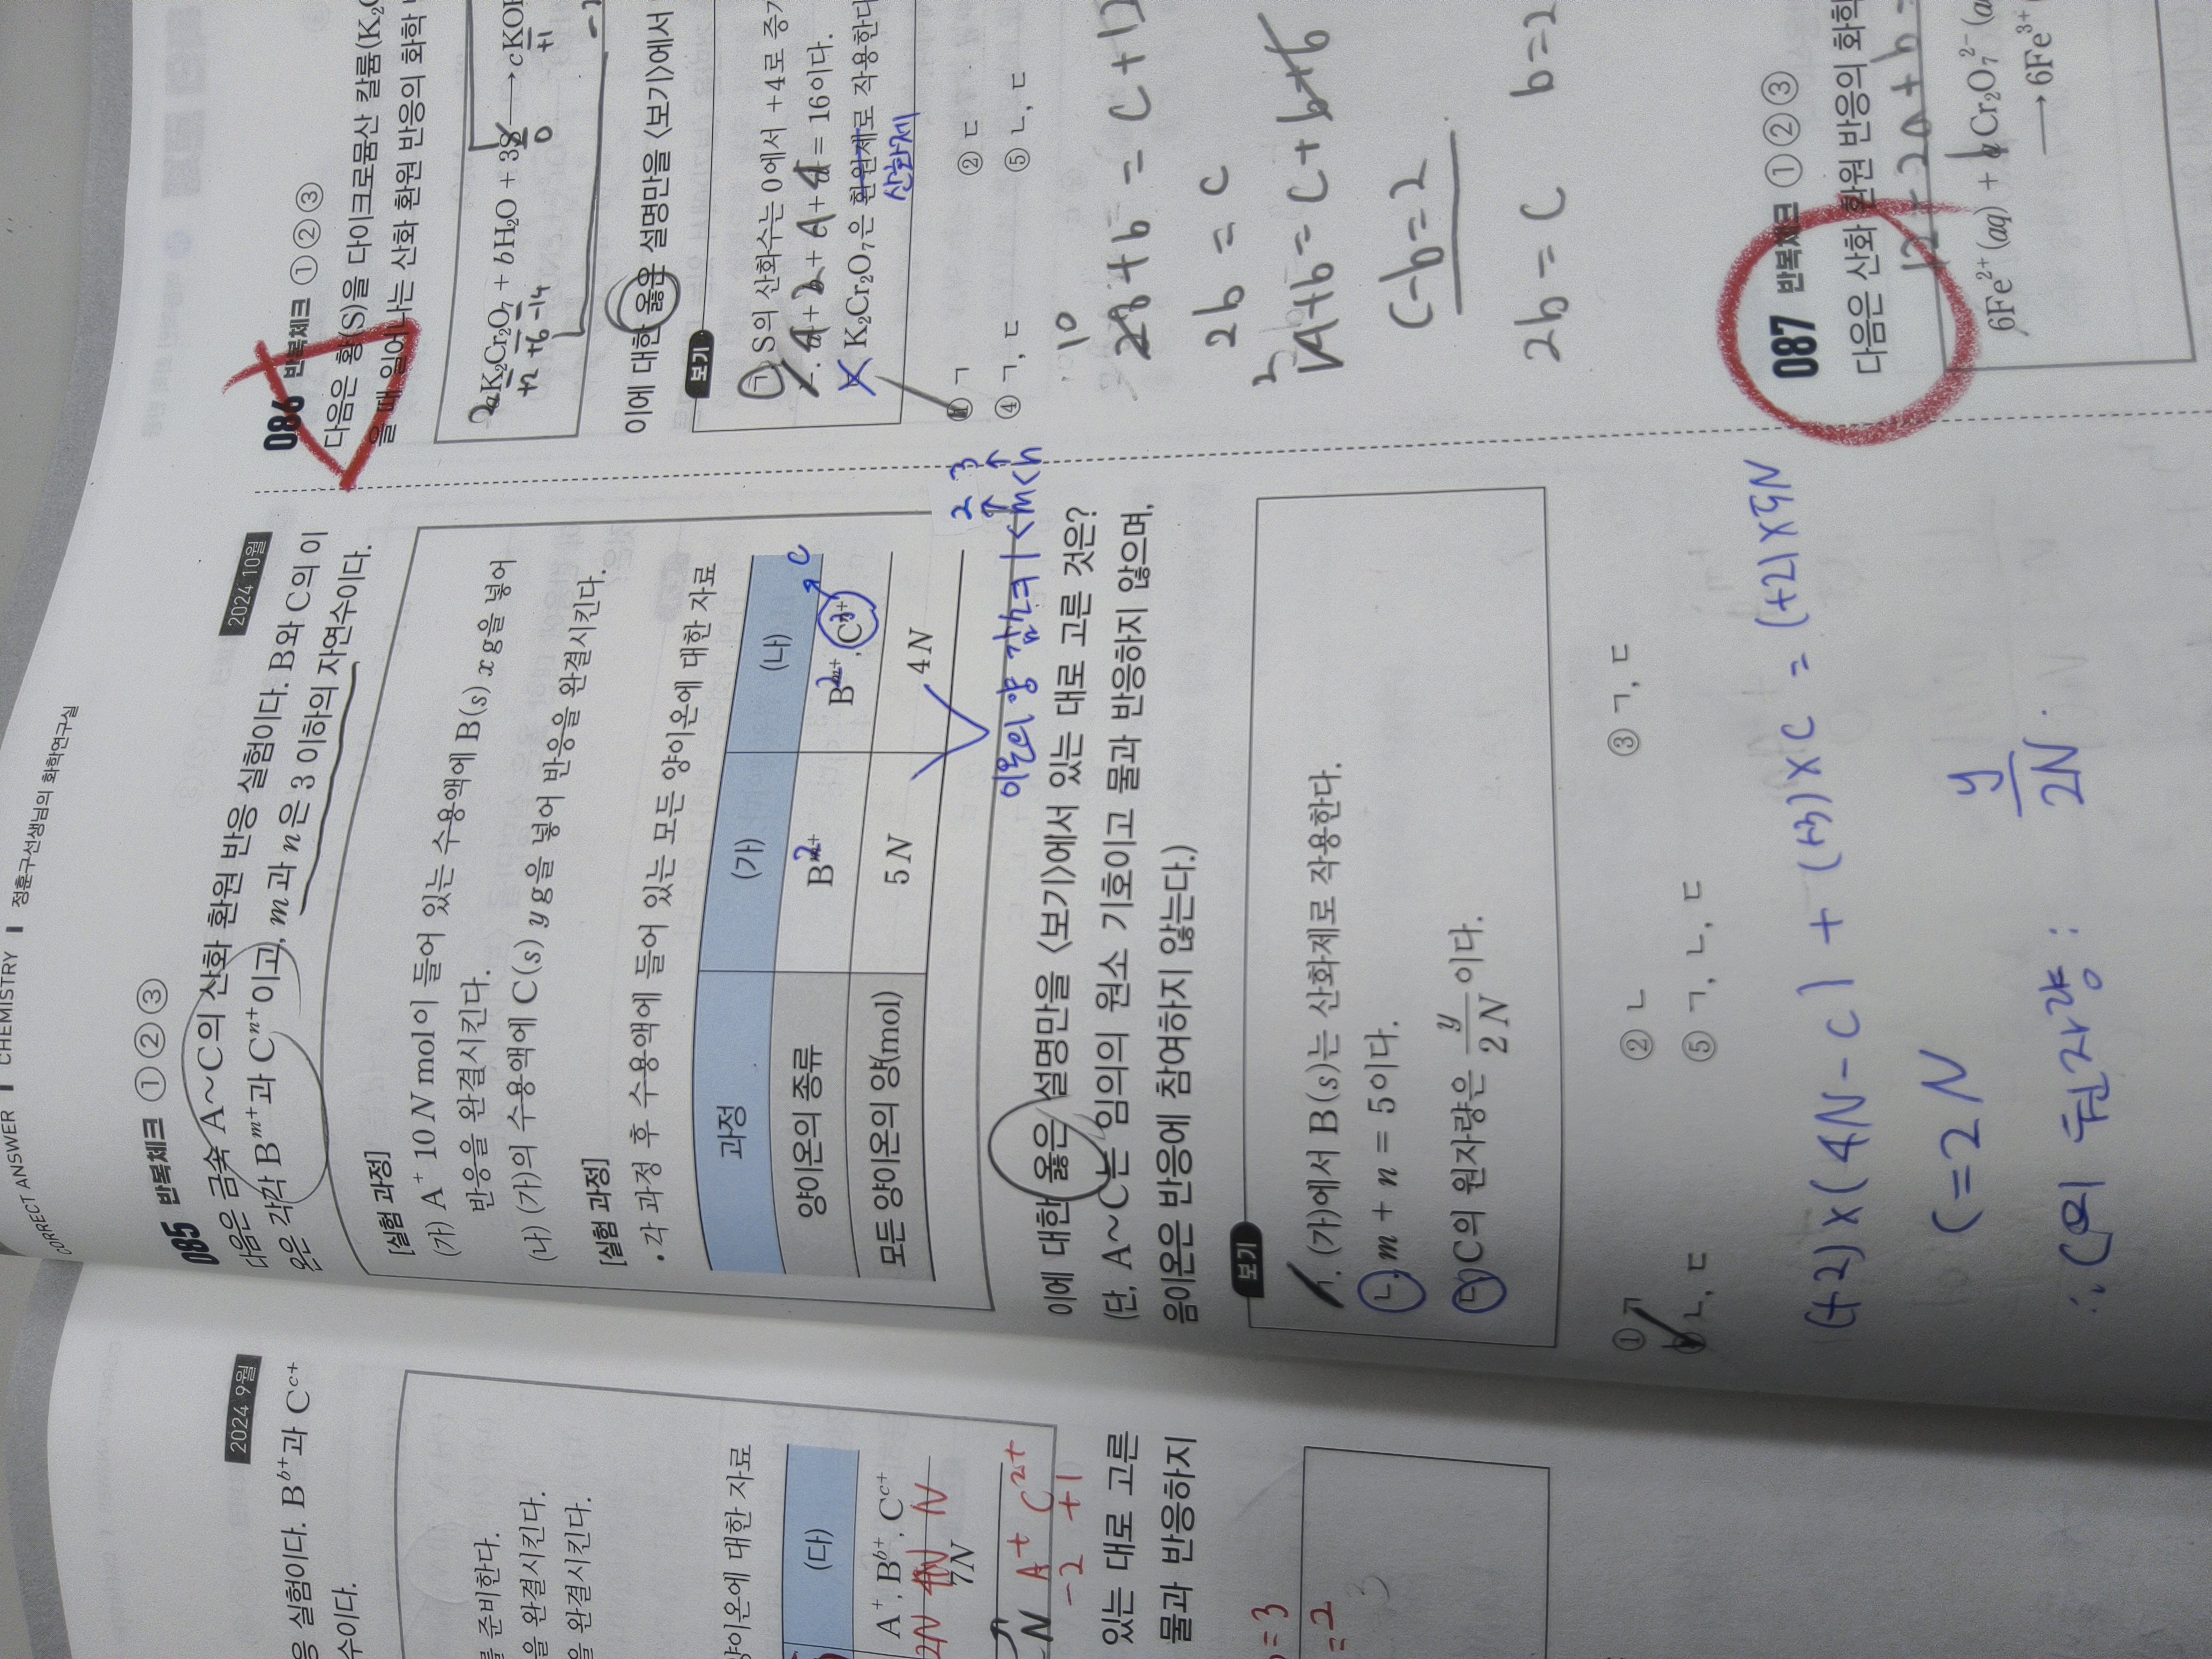 CORRECT ANSWER | CHEMISTRY | 정훈구선생님의 화학연구실
2024 9월
응 실험이다. B^{b+}과 C^{c+}
수이다.
를 준비한다.
을 완결시킨다.
을 완결시킨다.
양이온에 대한 자료
(다)
A^+, B^{b+}, C^{c+}
2N 4N N
7N
N A^+ C^{2+}
-2 +1
있는 대로 고른
물과 반응하지
=3
=2
085 반복체크 ①②③ 2024 10월
다음은 금속 A~C의 산화 환원 반응 실험이다. B와 C의 이
온은 각각 B^{m+}과 C^{n+}이고, m과 n은 3 이하의 자연수이다.
[실험 과정]
(가) A^+ 10N mol이 들어 있는 수용액에 B(s) x g을 넣어
반응을 완결시킨다.
(나) (가)의 수용액에 C(s) y g을 넣어 반응을 완결시킨다.
[실험 과정]
• 각 과정 후 수용액에 들어 있는 모든 양이온에 대한 자료
과정 (가) (나)
양이온의 종류 B^{m+} 2 B^{m+}, C^{n+} 2 3 C
모든 양이온의 양(mol) 5N 4N
2 3
이온의 양 감소 1<m<n
이에 대한 옳은 설명만을 <보기>에서 있는 대로 고른 것은?
(단, A~C는 임의의 원소 기호이고 물과 반응하지 않으며,
음이온은 반응에 참여하지 않는다.)
보기
ㄱ. (가)에서 B(s)는 산화제로 작용한다.
ㄴ. m + n = 5이다.
ㄷ. C의 원자량은 y/2N이다.
① ㄱ ② ㄴ ③ ㄱ, ㄷ
④ ㄴ, ㄷ ⑤ ㄱ, ㄴ, ㄷ
(+2)×(4N-C) + (+3)×C = (+2)×5N
C=2N
∴ C의 원자량 : y/2N.
086 반복체크 ①②③
다음은 황(S)을 다이크로뮴산 칼륨(K_2C
을 때 일어나는 산화 환원 반응의 화학
2 aK_2Cr_2O_7 + bH_2O + 3S → cKOH
+2 +6 -14 0 +1
이에 대한 옳은 설명만을 <보기>에서
보기
ㄱ. S의 산화수는 0에서 +4로 증가
ㄴ. a + b + c + d = 16이다.
ㄷ. K_2Cr_2O_7은 환원제로 작용한다
산화제
① ㄱ ② ㄷ
④ ㄱ, ㄷ ⑤ ㄴ, ㄷ
2b = c
c-b=2
2b = c b=2
087 반복체크 ①②③
다음은 산화 환원 반응의 화학
12 - 2a + b =
6Fe^{2+}(aq) + aCr_2O_7^{2-}(a
→ 6Fe^{3+}